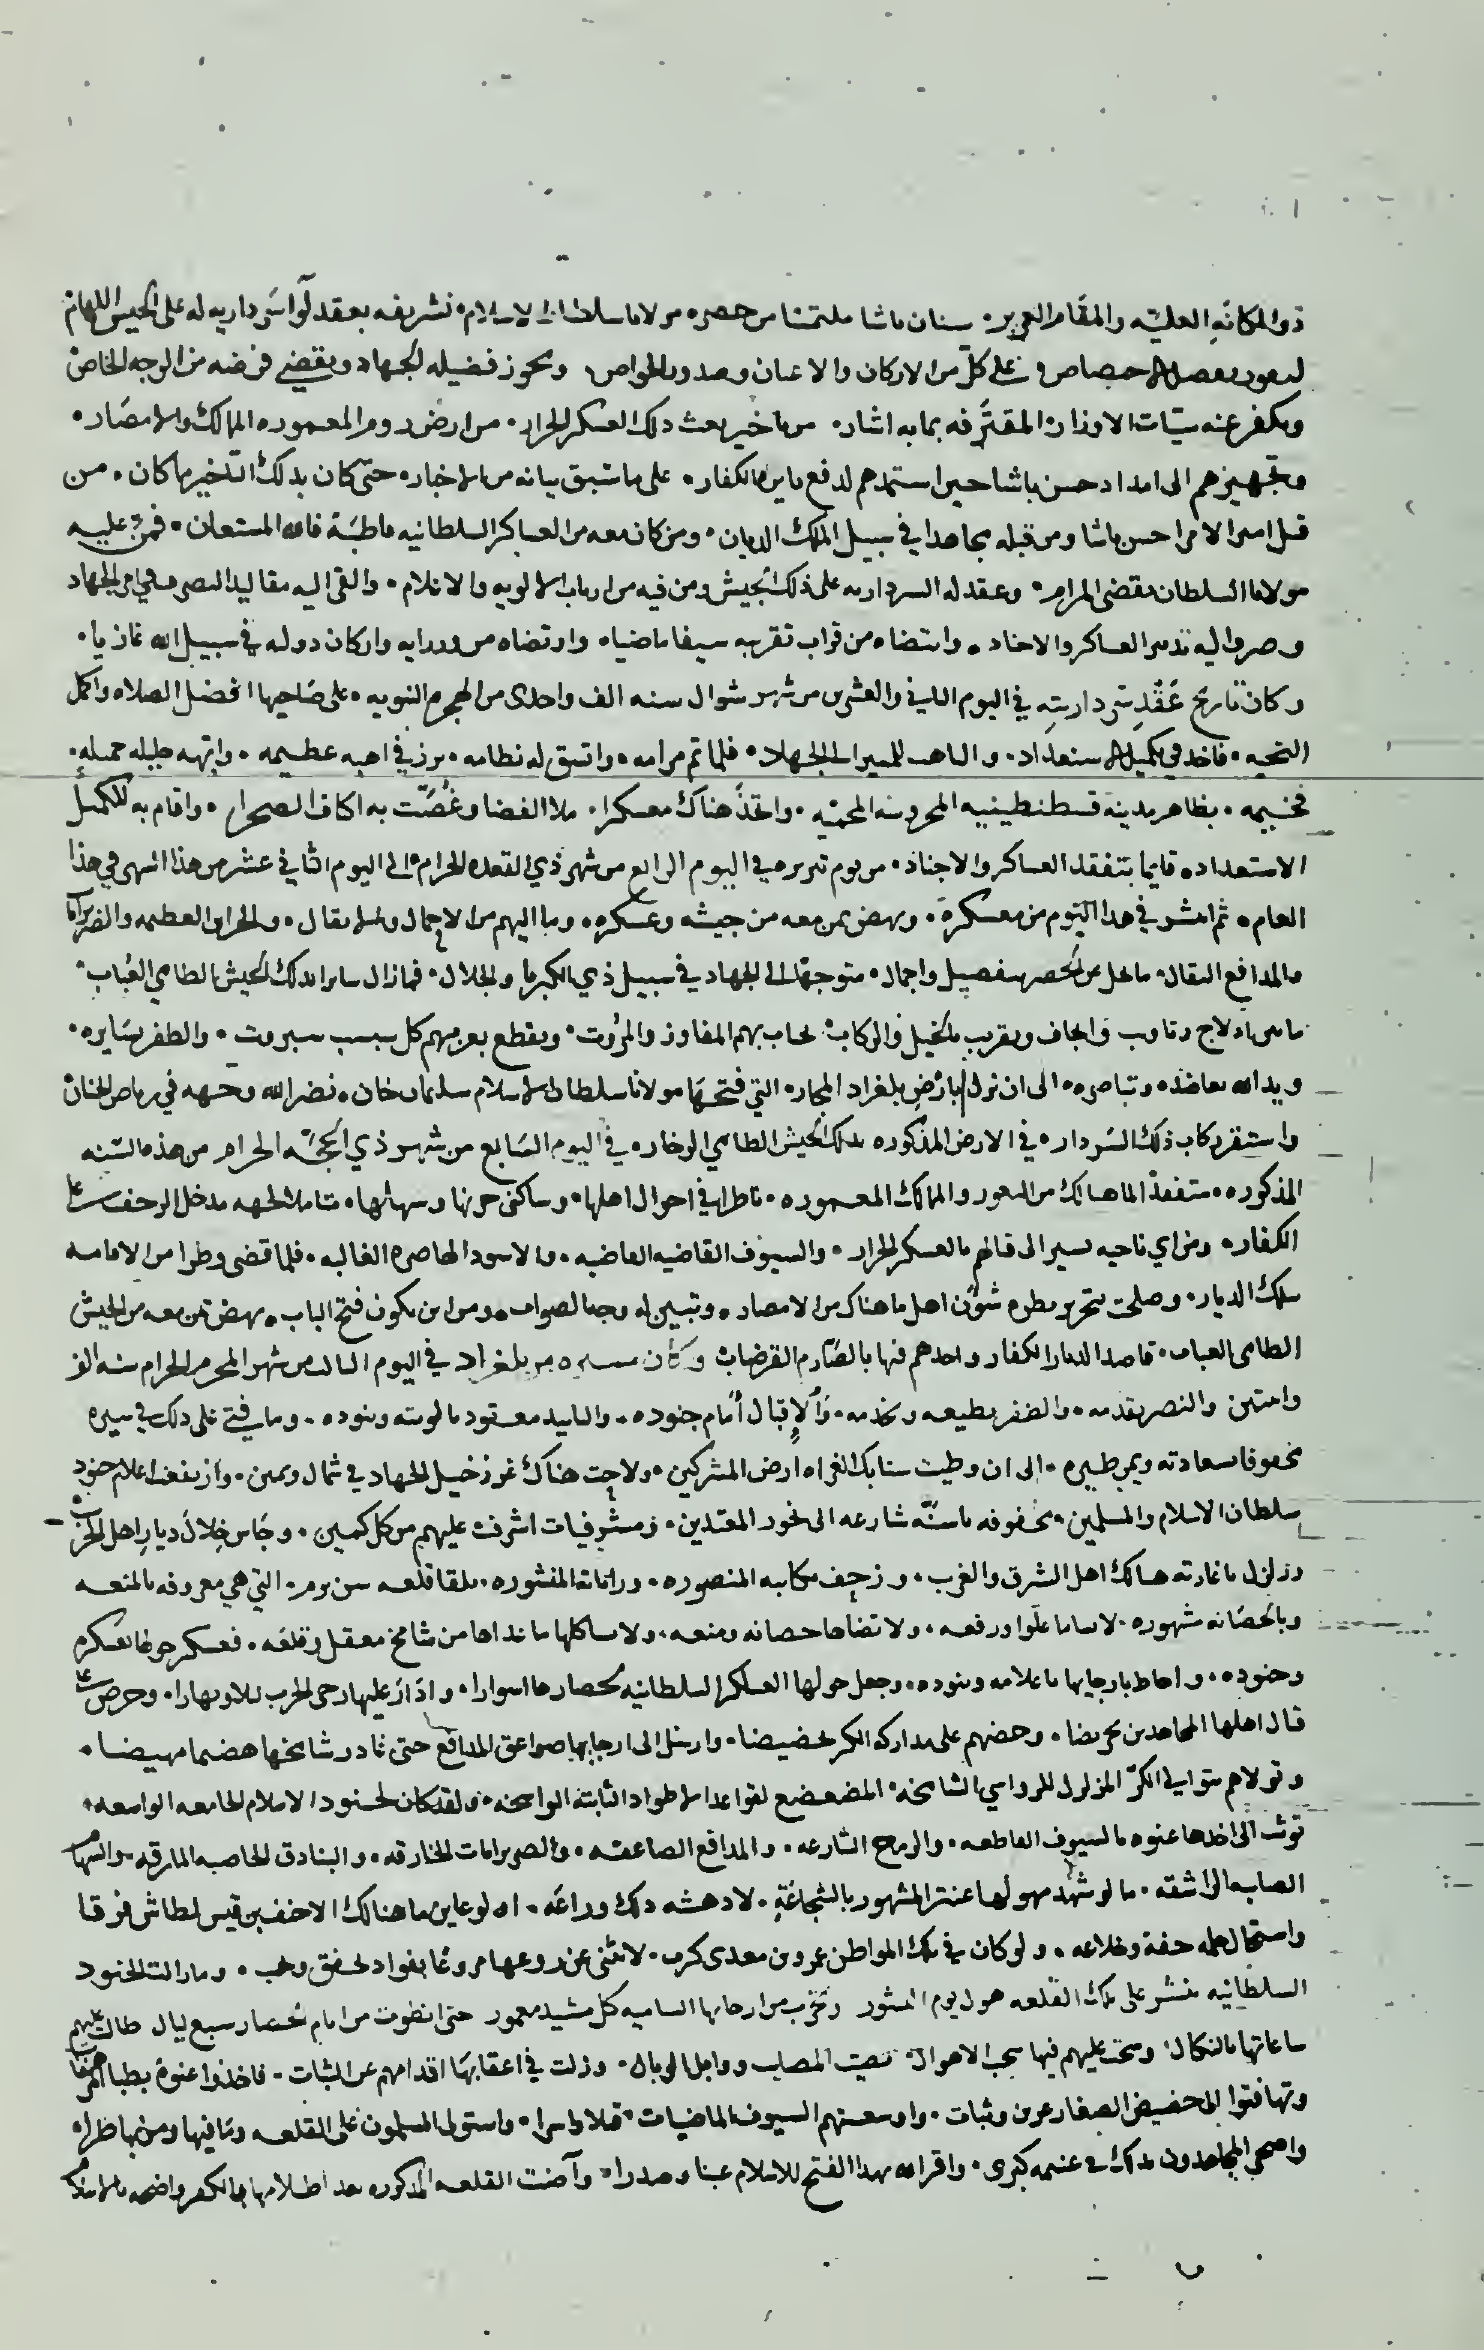 ذو المكانه العليه والمقام العزيز سنان باشا ملتمسا من حضره مولانا سلطان الاسلام تشريفه بعقد لوا سرداريه له على الجيش اللهام
على كل من الاركان والاعيان وصدور الخواص ويحوز فضيله الجهاد ويقضي فرضه من الوجه الخاص
ويكفر عنه سيات الاوزار المقترفه بما به اشار من تاخير بعث ذلك العسكر الجرار من ارض روم المعموره الممالك والامصار
وتجهيزهم الى امداد حسن باشا حين استمدهم لدفع الكفار على ما سبق بيانه من الاخبار حتى كان بذلك التاخير ما كان من
قبل امير الامرا حسن باشا ومن قبله مجاهدا في سبيل الملك الديان ومن كان معه من العساكر السلطانيه قاطبة فالله المستعان فمن عليه
مولانا السلطان بقضى المرام وعقد له السرداريه على ذلك الجيش ومن فيه من ارباب الالويه والاعلام والقى اليه مقاليد التصرف في امر الجهاد
وصرف اليه تدبير العساكر والاجناد وانتضاه من قراب تقريبه سيفا ماضيا وارتضاه من وزرايه واركان دولته في سبيل الله غازيا
وكان تاريخ عقد سرداريته في اليوم الثاني والعشرين من شهر شوال سنه الف واحدى من الهجره النبويه على صاحبها افضل الصلاه واكمل
التحيه فاخذ في تكميل الاستعداد والتاهب للمسير الى الجهاد فلما تم مرامه واتسق له نظامه برز في اهبه عظيمه وابهه جليله جميله
بظاهر مدينة قسطنطينيه المحروسه المحميه واتخذ هناك معسكرا ملا الفضا وغصت به اكناف الصحرا واقام به لتكميل
الاستعداد قايما بتفقد العساكر والاجناد من يوم تبريزه في اليوم الرابع من شهر ذي القعده الحرام الى اليوم الثاني عشر من هذا الشهر في هذا
العام ثم في هذا اليوم من معسكره ونهض بمن معه من جيشه وعسكره وما اليهم من الاحمال والاثقال والخزاين العظيمه والضربزانات
والمدافع الثقال ما جل عن الحصر بتفصيل واجمال متوجها الى الجهاد في سبيل ذي الكبريا والجلال فما زال سايرا بذلك الجيش الطامي العباب
ما بين ادلاج وتاويب وايجاف وتقريب بالخيل والركاب تجاب بهم المفاوز والمروت ويقطع بعزمهم كل سبسب سبروت والظفر يسايره
ويد الله تعاضده وتناصره الى ان نزل بارض بلغراد المجار التي فتحها مولانا سلطان الاسلام سليمان خان نضر الله وجهه في رياض الجنان
واستقر ركاب ذلك السردار في الارض المذكوره بذلك الجيش الطامي الزخار في اليوم السابع من شهر ذي الحجه الحرام من هذه السنه
المذكوره متفقدا لما هنالك من الثغور والممالك المعموره ناظرا في احوال اهلها وساكني حزنها وسهلها متاملا لجهه مدخل الزحف على
الكفار ومن اي ناحيه يسير الى قتالهم بالعسكر الجرار والسيوف القاضيه القاضبه والاسود الهاصره الغالبه فلما قضى وطرا من الاقامه
بتلك الديار وصلحت بتحرير نظره شؤن اهل ما هناك من الامصار وتبين له وجه الصواب ومن اين يكون فتح الباب نهض بمن معه من الجيش
الطامي العباب قاصدا لديار الكفار واخذهم فيها بالصارم القرضاب وكان مسيره من بلغراد في اليوم الثالث من شهر المحرم الحرام سنه الف
واثنتين والنصر يقدمه والظفر يطيعه ويخدمه والاقبال أمام جنوده والتاييد معقود بالويته وبنوده وما فتي على ذلك في سيره
محفوفا بسعادته ويمن طيره الى ان وطيت سنابك الغزاه ارض المشركين ولاحت هناك غرر خيل الجهاد في شمال ويمين وارتفعت اعلام جنود
سلطان الاسلام والمسلمين محفوفه باسنه شارعه الى نحور المعتدين ومشرفيات اشرفت عليهم من كل كمين وجاس خلال ديار اهل الحرب
وزلزل بغارته هنالك اهل الشرق والغرب وزحف بكتايبه المنصوره وراياته المنشوره تلقا قلعه التي هي معروفه بالمنعه
وبالحصانه مشهوره لا يساما علوا ورفعه ولا تضاها حصانه ومنعه ولا يشاكلها ما عداها من شامخ معقل وقلعه فعسكر حولها بعسكره
وجنوده واحاط بارجايها باعلامه وبنوده وجعل حولها العساكر السلطانيه لحصارها اسوارا وادار عليها رحى الحرب ليلا ونهارا وحرض على
قتال اهلها المجاهدين تحريضا وحضهم على مداركة الكر تحضيضا وارسل الى ارجايها صواعق المدافع حتى غادر شامخها هضما مهيضا
وتولاهم بتوالي الكر المزلزل للرواسي الشامخه المضعضع لقواعد الاطواد الثابته الراسخه ولقد كان لجنود الاسلام الجامعه الواسعه
توثب الى اخذها عنوه بالسيوف القاطعه والرماح الشارعه والمدافع الصاعقه والضربزانات الخارقه والبنادق الحاصبه المارقه والسهام
الصايبه الراشقه ما لو شهد مهولها عنتر المشهور بالشجاعة لادهشه ذلك وراعه او لو عاين ما هنالك الاحنف بن قيس لطاش فرقا
واستحال حلمه خفة وخلاعه ولو كان في تلك المواطن عمرو بن معدي كرب لانثنى عن روعها مروعا بفواد يخفق ويجب وما زالت الجنود
السلطانيه تنشر على تلك القلعه هول يوم النشور وتخرب من ارجايها الساميه كل مشيد معمور حتى انطوت من ايام الحصار سبع ليال طالت عليهم
ساعاتها بالنكال وسحت عليهم فيها سحب الاهوال بصيب المصايب ووابل الوبال وزلت في اعقابها اقدامهم عن الثبات فاخذوا عنوة بظبا المرهفات
وتهافتوا الى حضيض الصغار عن وثبات واوسعتهم السيوف الماضيات قتلا واسرا واستولى المسلمون على القلعه وما فيها ومن بها طرا
واضحى المجاهدون بذلك في غنيمه كبرى واقر الله بهذا الفتح للاسلام عينا وصدرا وآضت القلعه المذكوره بعد اظلامها بالكفر واضحه بالاسلام